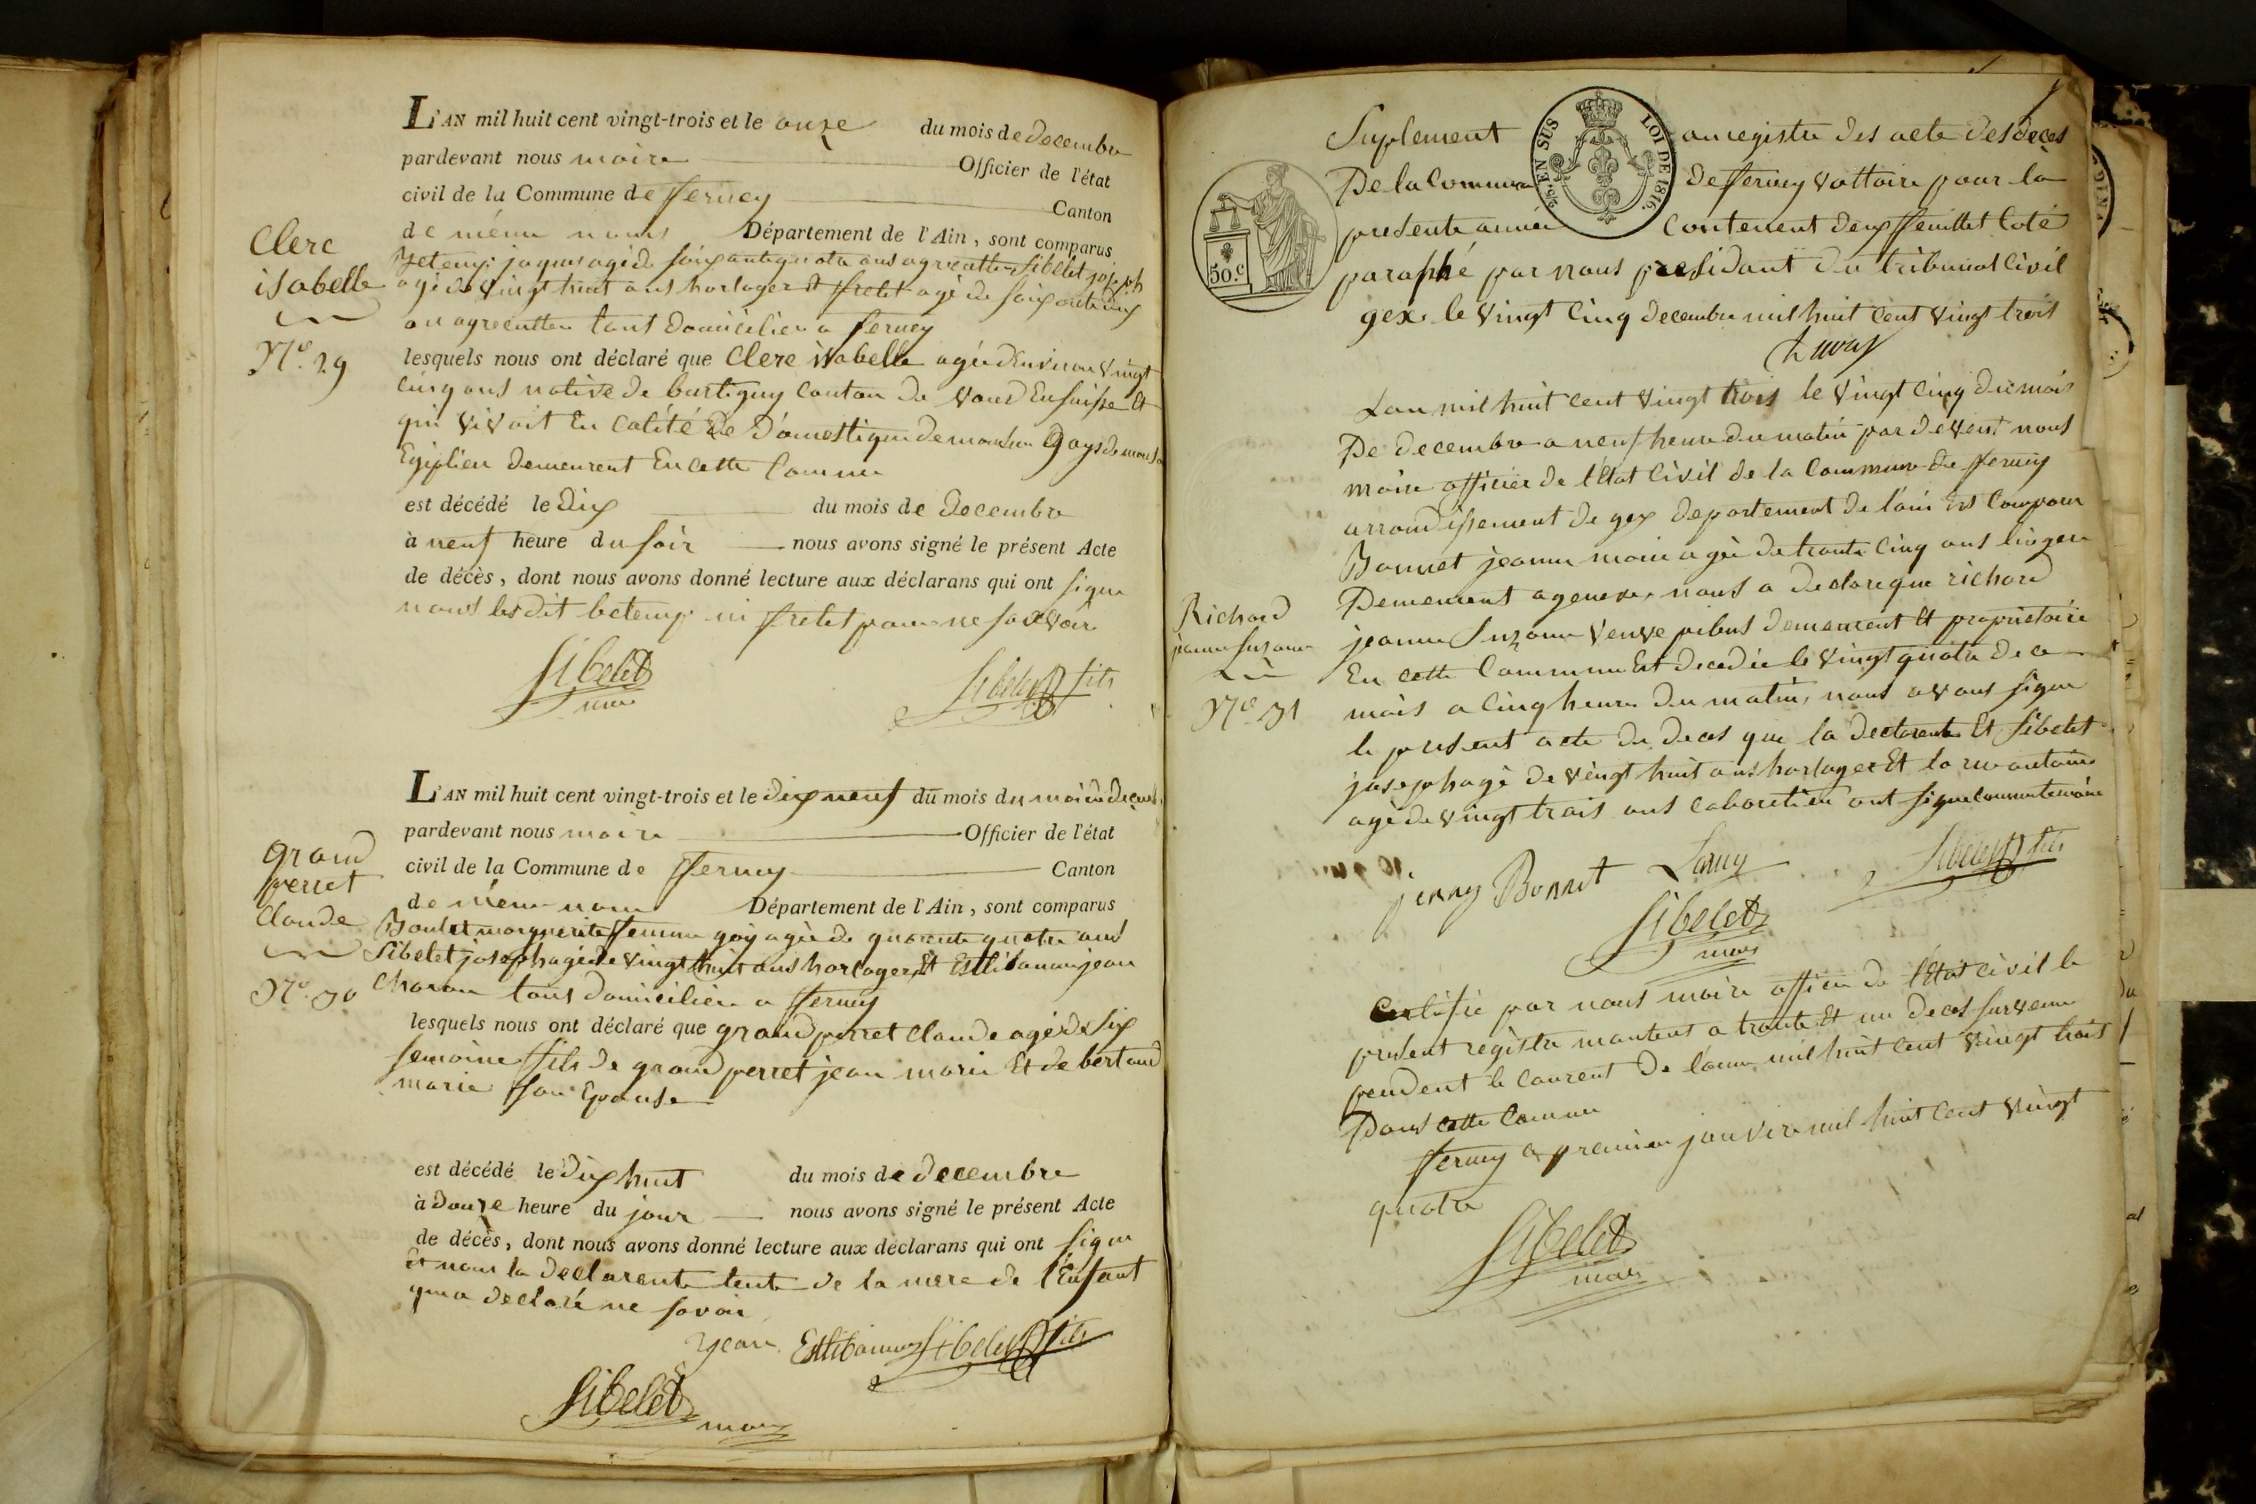 L'AN mil huit cent vingt-trois et le onze du mois de decembre
pardevant nous maire Officier de l'état
civil de la Commune de fferney Canton
de méme nom Département de l'Ain, sont comparus
Betemp jaques agé de soixante quatre ans agriculteur Sibelet joseph
agé de vingt huit ans horloger Et fretet agé de soixante
an agriculteur tous domicilier a ferney
Clerc
isabelle
N.º 29
lesquels nous ont déclaré que Clerc isabelle agée d'environ vingt
cinq ans native de bartigny canton de vaud En suisse Et
qui vivoit En calité de Domestique de monsieur
Egiptien demeurent En cette Commune
est décédé le dix du mois de decembre
à neuf heure du soir nous avons signé le présent Acte
de décès, dont nous avons donné lecture aux déclarans qui ont signe
nous ledit betemp ni fretet pour ne savoir
Sibelet
maire
Sibelet fils
L'AN mil huit cent vingt-trois et le dix neuf du mois du mois de decemb.
pardevant nous maire Officier de l'état
civil de la Commune de fferney Canton
de méme nom Département de l'Ain, sont comparus
grand
perret
Claude
N.º 30
Boulet marguerite femme goy agée de quarente quatre ans
Sibelet joseph agé de vingt huit ans horloger Et Esthibanun jean
charon tous domicilier a fferney
lesquels nous ont déclaré que grand perret Claude agé de six
semaine ffils de grand perret jean marie Et de bertand
marie sson Epouse
est décédé le dix huit du mois de decembre
à douze heure du jour nous avons signé le présent Acte
de décès, dont nous avons donné lecture aux déclarans qui ont signe
Et non la declarente tente de la mere de l'Enfant
qui a declaré ne savoir
jean Sibelet fils
Sibelet maire
Suplement au registre des acte des deces
De la Commune de fferney voltaire pour la
presente année Contenent deux ffeuillet Coté
paraphé par nous presidant du tribunal Civil
gex le vingt Cinq decembre mil huit cent vingt trois
2/5. EN SUS LOI DE 1816.
50.c
L'an mil huit cent vingt trois le vingt Cinq du mois
De decembre a neuf heure du matin par devent nous
maire officier de l'Etat Civil de la Commune de fferney
arrondissement de gex departement de l'ain Est Comparu
Bonnet jeanne marie agée de trente Cinq ans lingere
Demeurent a geneve, nous a declare que richard
jeanne Suzanne veuve demeurent Et proprietaire
En cette Commune Est decedée le vingt quatre de ce
mois a Cinq heure du matin, nous avons signe
le present acte de deces que la declarente Et Sibelet
joseph agé de vingt huit ans horloger Et
agé de vingt trois ans cabaretier ont signe comme temoins
Richard
jeanne Suzanne
N.º 31
jenny Bonnet
Sibelet fils
Sibelet
maire
Certifié par nous maire officier de l'Etat Civil le
present registre montent a trente Et un deces survenu
pendent le courent de l'anné mil huit cent vingt trois
Dans cette Commune
fferney le premier janvier mil huit cent vingt
quatre
Sibelet
maire